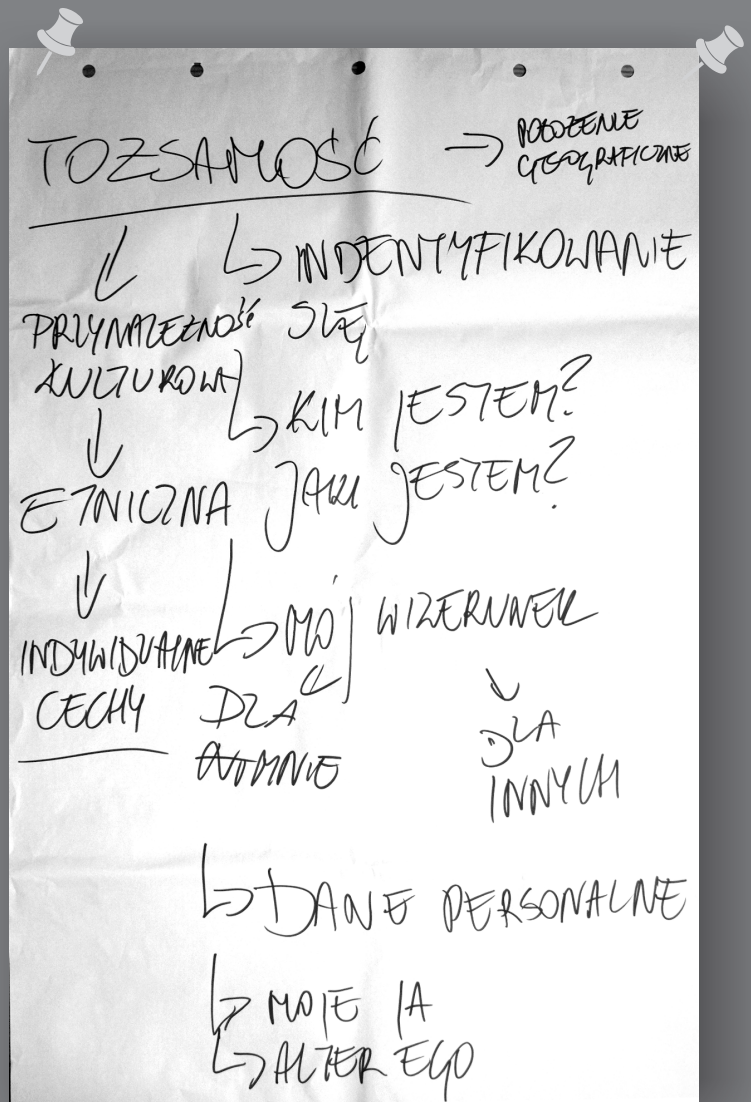 TOZSAMOŚĆ
→ POŁOŻENIE
GEOGRAFICZNE
↳ INDENTYFIKOWANIE
SIĘ
PRZYNALEŻNOŚĆ
KULTUROWA
↳ KIM JESTEM?
JAKI JESTEM?
ETNICZNA
INDYWIDUALNE
CECHY
↳ MÓJ WIZERUNEK
DLA
MNIE
DLA
INNYCH
↳ DANE PERSONALNE
↳ MOJE JA
↳ ALTER EGO